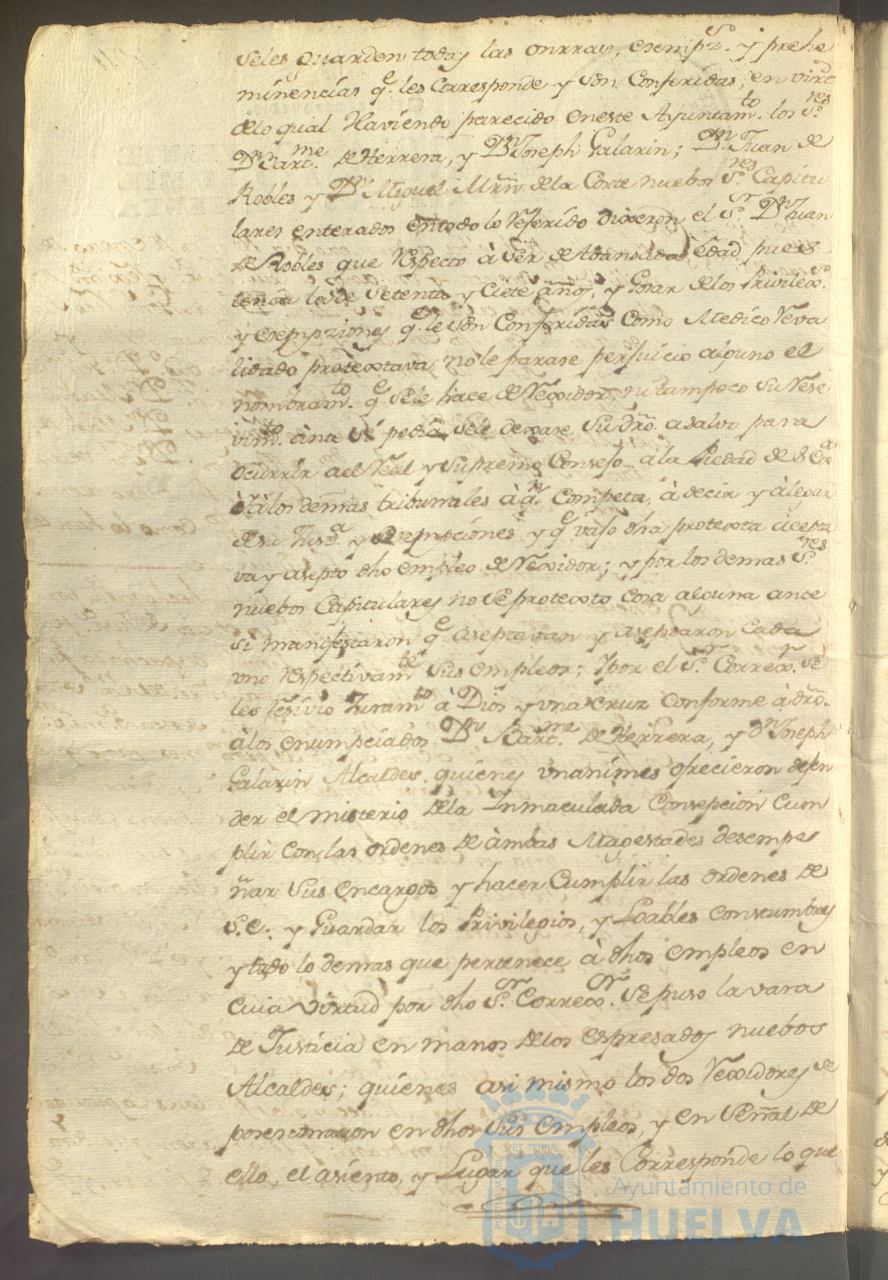 seles guarden todas las onrras, exempz.s y prehe
minencias q.e les Corresponde y son Conferidas, en virtd
delo qual Haviendo parecido eneste Ayuntam.to los S.res
D.n Bart.me de Herrera, y D.n Joseph Galarin; D.n Juan de
Robles y D.n Miguel Mrñ dela Corte nuebos S.res Capitu
lares enterados entodo lo referido dixeron el S.r D.n Juan
de Robles que respecto à ser de Abansada edad pues
tenia la de setenta y ciete años, y gosar delos Privilex.s
y exempziones q.e le son Conferidas como Medico reva
lidado protextava nole parase perjuicio alguno el
nombram.to q.e sele hace de rexidor, ni tampoco su rese
vim.to ànte si pedia sele dexase su dro. asalvo para
ocurrir a el Real y Supremo Consejo à la Piedad de
alos demas tribunales à q.n Competa, à decir y àlegar
de su Just.a y exepciones y q.e vajo dha protexta acepta
va y asepto dho empleo de rexidor; y por los demas S.res
nuebos Capitulares no se protexto cosa alguna ante
si manifestaron q.e aseptavan y aseptaron cada
uno respectivam.te sus empleos; y por el S.r Correx.r se
les resivio Juram.to à Dios y una cruz conforme à dro.
à los enumpciados D.n Bart.me de Herrera, y D.n Joseph
Galarin Alcaldes quienes unanimes ofrecieron defen
der el misterio dela Inmaculada Consepcion Cum
plir con las ordenes de àmbas Magestades desempe
ñar sus encargos y hacer Cumplir las ordenes de
S.E. y Guardar los Privilegios, y Loables constumbres
y todo lo demas que pertenece à dhos empleos en
cuia virtud por dho S.r Correx.r se puso la vara
de Justicia en manos delos expresados nuebos
Alcaldes; quienes asi mismo los dos rexidores se
en dhos sus empleos, y en señal de
ello, el asiento, y Lugar que les Corresponde lo que
Ayuntamiento de
HUELVA